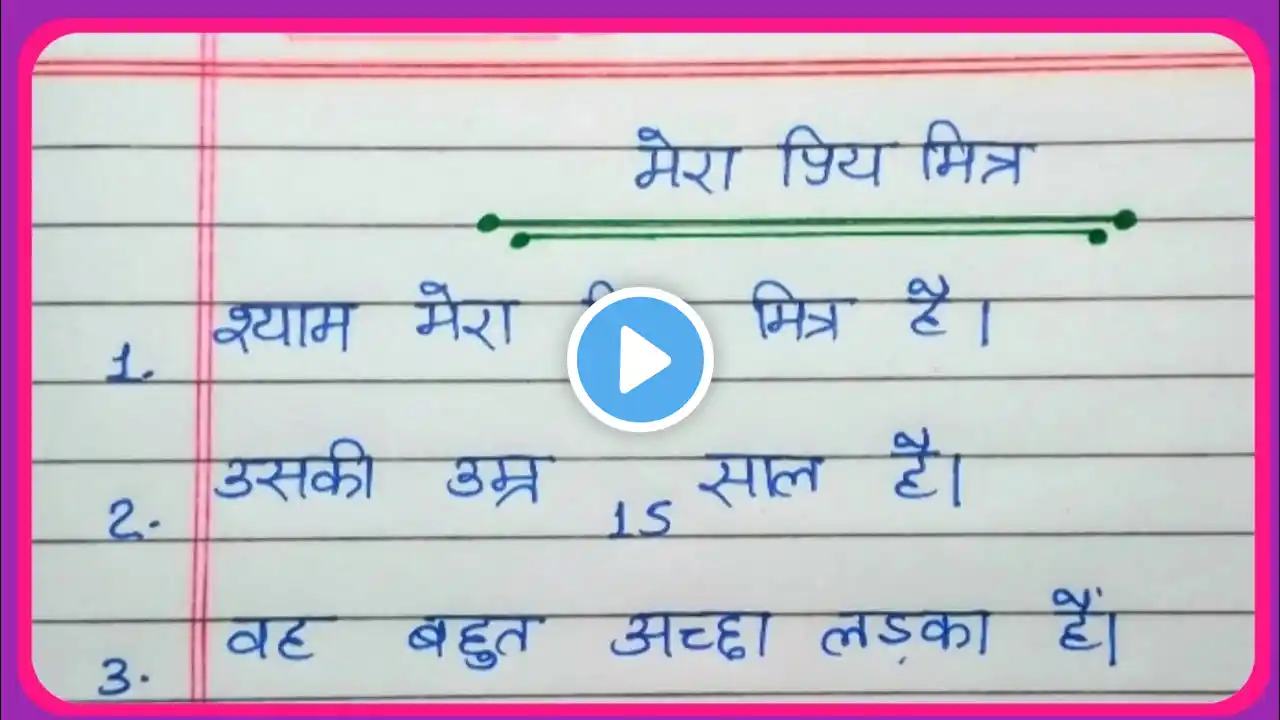 मेरा प्रिय मित्र
1. श्याम मेरा मित्र है।
2. उसकी उम्र 15 साल है।
3. वह बहुत अच्छा लड़का हैं।